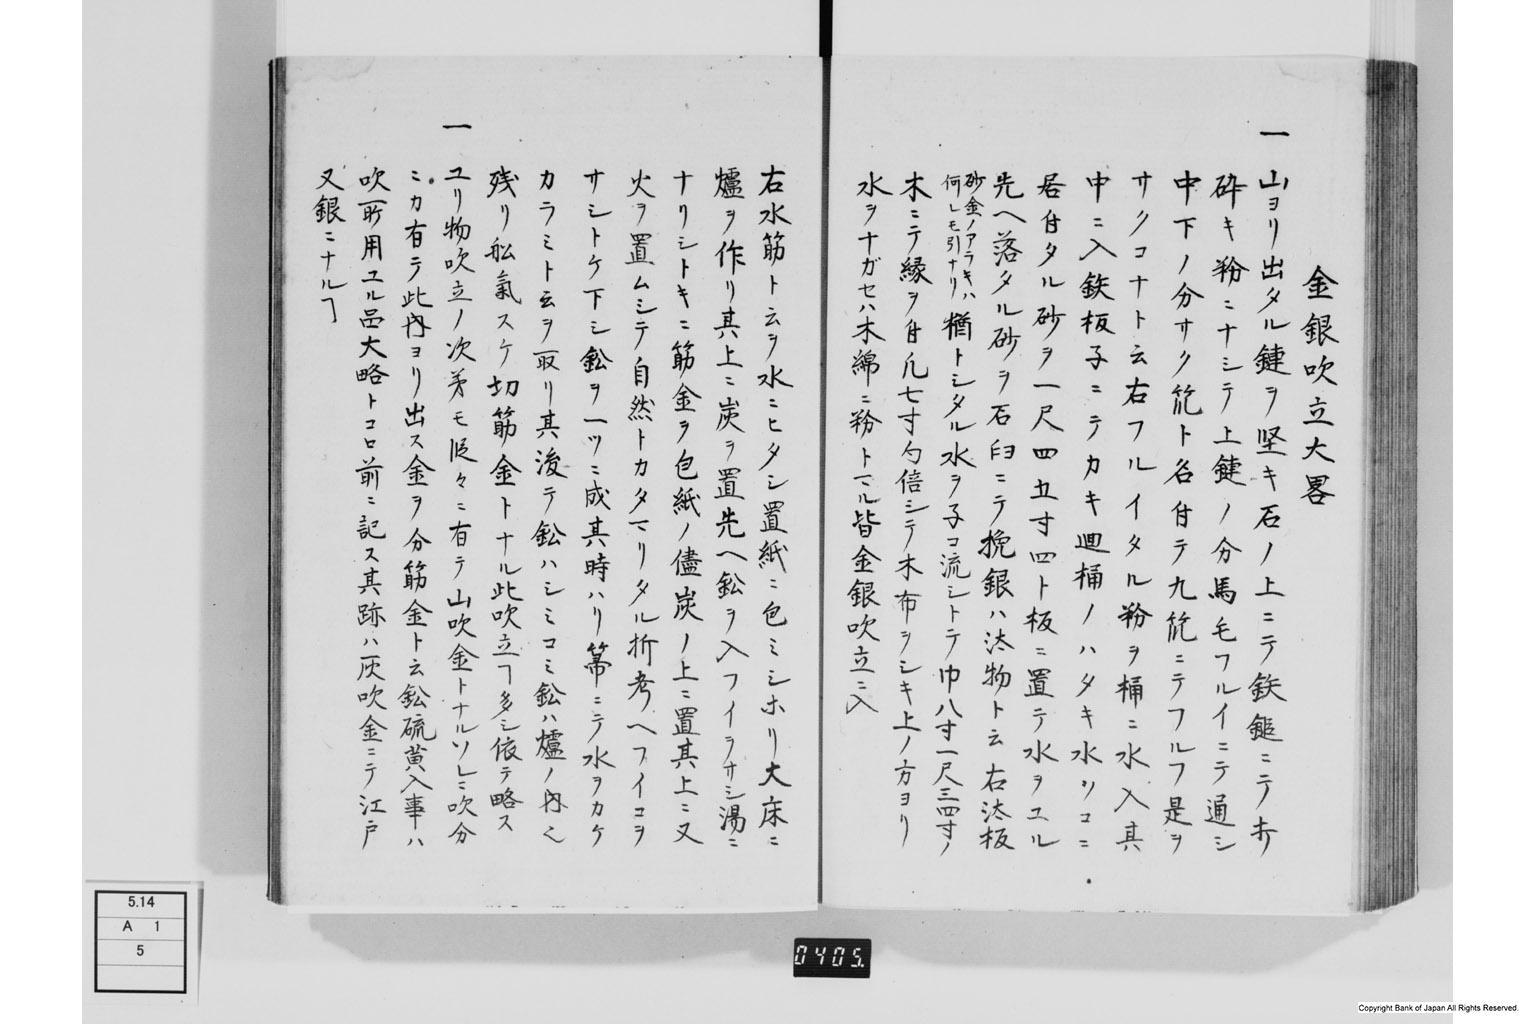 金銀吹立大畧
一
山ヨリ出タル鏈ヲ堅キ石ノ上ニテ鉄鎚ニテ
砕キ粉ニナシテ上鏈ノ分馬毛フルイニテ通シ
中下ノ分サク笵ト名付テ九笵ニテフルフ是ヲ
サクコナト云右フルイタル粉ヲ桶ニ水入其
中ニ入鉄板子ニテカキ廻桶ノハタキ水ソコニ
居付タル砂ヲ一尺四五寸四ト板ニ置テ水ヲユル
先ヘ落タル砂ヲ石臼ニテ挽銀ハ汰物ト云右汰板
砂金ノアラキハ
何レモ引ナリ
猶トシタル水ヲ子コ流シトテ巾八寸一尺三四寸ノ
木ニテ縁ヲ付凡七寸勾倍シテ木布ヲシキ上ノ方ヨリ
水ヲナガセハ木綿ニ粉トマル皆金銀吹立ニ入
右水筋ト云ヲ水ニヒタシ置紙ニ包ミシホリ大床ニ
爐ヲ作リ其上ニ炭ヲ置先ヘ鈆ヲ入フイラサシ湯ニ
ナリシトキニ筋金ヲ包紙ノ儘炭ノ上ニ置其上ニ又
火ヲ置ムシテ自然トカタマリタル折考ヘフイコヲ
サシトケ下シ鈆ヲ一ツニ成其時ハリ箒ニテ水ヲカケ
カラミト云ヲ取リ其後テ鈆ハシミコミ鈆ハ爐ノ内ヘ
残リ舩氣スケ切筋金トナル此吹立ヿ多シ依テ略ス
一
ユリ物吹立ノ次㐧モ段々ニ有テ山吹金トナルソレニ吹分
ニカ有テ此内ヨリ出ス金ヲ分筋金ト云鈆硫黄入事ハ
吹所用ユル品大略トコロ前ニ記ス其跡ハ灰吹金ニテ江戸
又銀ニナルヿ
5.14
A 1
5
0405.
Copyright Bank of Japan All Rights Reserved.